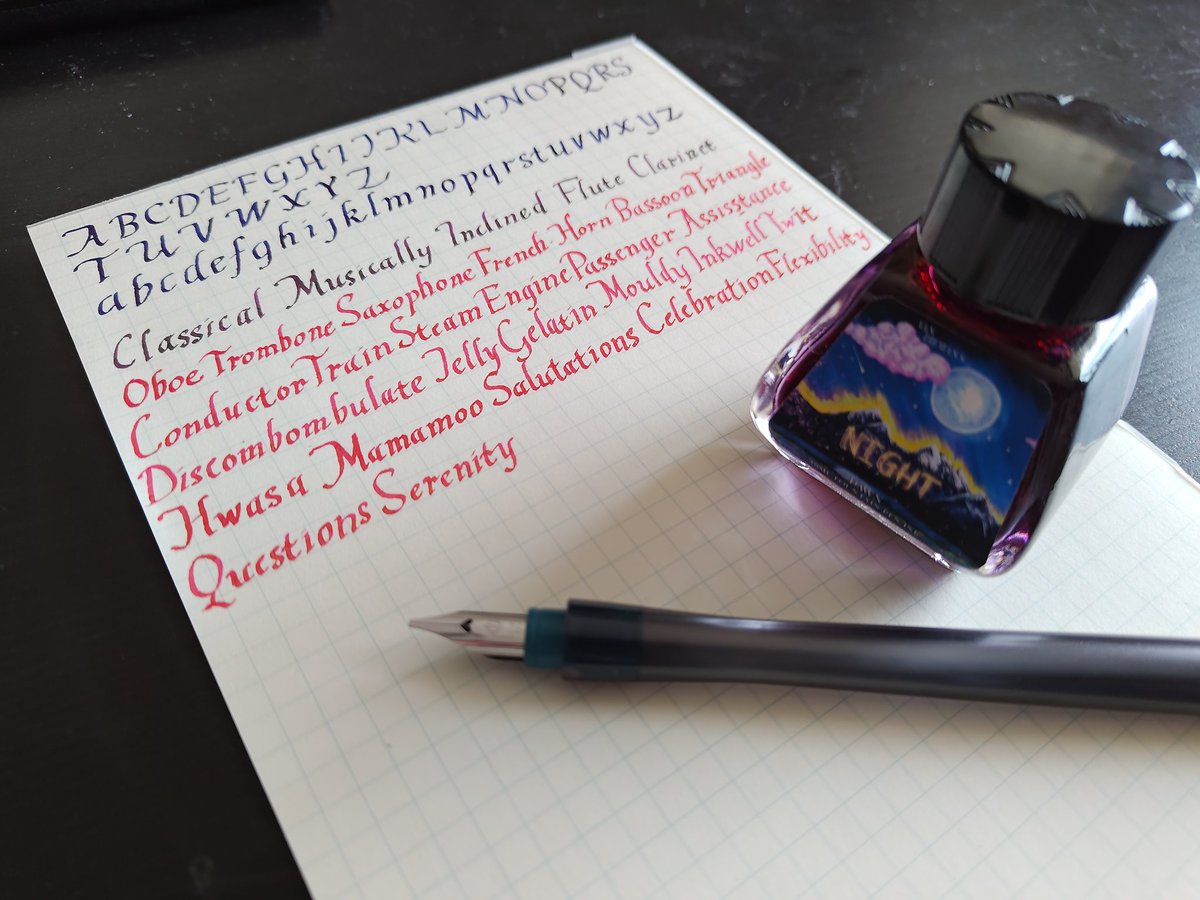 ABCDEFGHIJKLMNOPQRS
TUVWXYZ
abcdefghijklmnopqrstuvwxyz
Classical Musically Inclined Flute Clarinet
Oboe Trombone Saxophone French Horn Bassoon Triangle
Conductor Train Steam Engine Passenger Assisstance
Discombombulate Jelly Gelatin Mouldy Inkwell Twit
Hwasa Mamamoo Salutations Celebration Flexibility
Questions Serenity
NIGHT